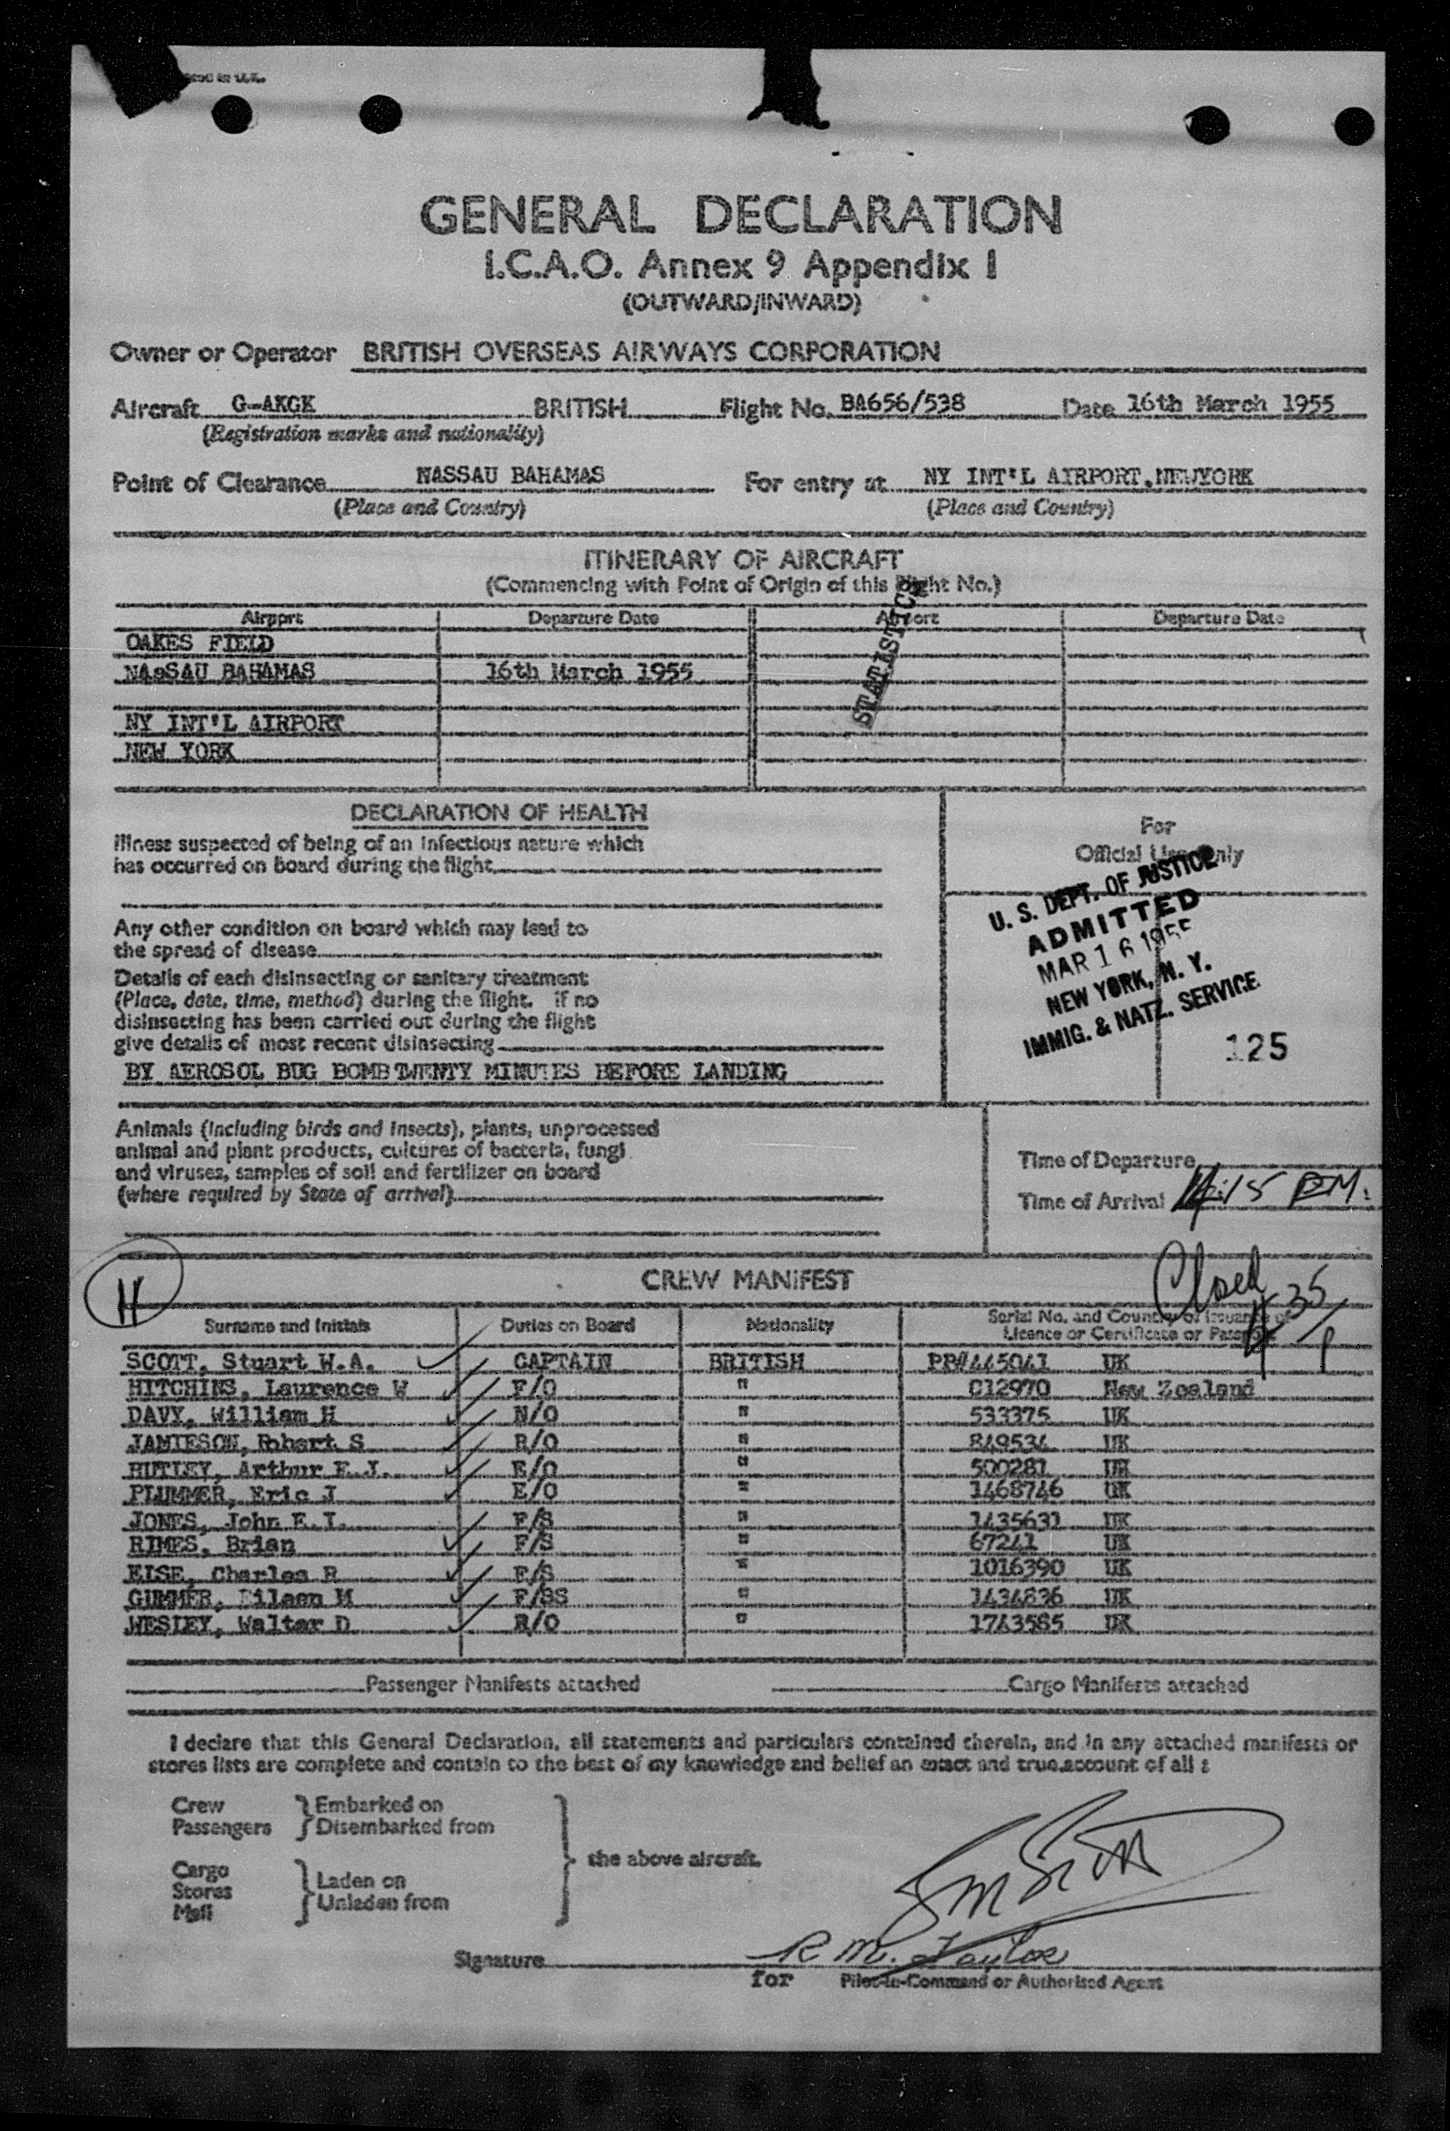 GENERAL DECLARATION
I.C.A.O. Annex 9 Appendix I
(OUTWARD/INWARD)
Owner or Operator BRITISH OVERSEAS AIRWAYS CORPORATION
Aircraft G-AKGK BRITISH Flight No. BA656/538 Date 16th March 1955
(Registration marks and nationality)
Point of Clearance NASSAU BAHAMAS For entry at NY INT'L AIRPORT, NEWYORK
(Place and Country) (Place and Country)
ITINERARY OF AIRCRAFT
(Commencing with Point of Origin of this Flight No.)
Airport Departure Date Airport Departure Date
OAKES FIELD
NAsSAU BAHAMAS 16th March 1955
STATISTICS
NY INT'L AIRPORT
NEW YORK
DECLARATION OF HEALTH
Illness suspected of being of an infectious nature which
has occurred on board during the flight
Any other condition on board which may lead to
the spread of disease
Details of each disinsecting or sanitary treatment
(Place, date, time, method) during the flight. If no
disinsecting has been carried out during the flight
give details of most recent disinsecting
BY AEROSOL BUG BOMB TWENTY MINUTES BEFORE LANDING
For
Official Use Only
U. S. DEPT. OF JUSTICE
ADMITTED
MAR 16 1955
NEW YORK, N. Y.
IMMIG. & NATZ. SERVICE
125
Animals (including birds and insects), plants, unprocessed
animal and plant products, cultures of bacteria, fungi
and viruses, samples of soil and fertilizer on board
(where required by State of arrival)
Time of Departure
Time of Arrival 4:15 P.M.
11
CREW MANIFEST
Closed 4 35/P
Surname and Initials Duties on Board Nationality Serial No. and Country of Issuance of
Licence or Certificate or Passport
SCOTT, Stuart W.A. CAPTAIN BRITISH PP#445041 UK
HITCHINS, Laurence W F/O " 012970 New Zealand
DAVY, William H N/O " 533375 UK
JAMIESON, Robert S R/O " 849534 UK
HUTLEY, Arthur E.J. E/O " 500281 UK
PLUMMER, Eric J E/O " 1468746 UK
JONES, John E.I. F/S " 1435631 UK
RIMES, Brian F/S " 67241 UK
ELSE, Charles R F/S " 1016390 UK
GUMMER, Eileen M F/SS " 1434836 UK
WESLEY, Walter D R/O " 1743585 UK
Passenger Manifests attached Cargo Manifests attached
I declare that this General Declaration, all statements and particulars contained therein, and in any attached manifests or
stores lists are complete and contain to the best of my knowledge and belief an exact and true account of all :
Crew Embarked on
Passengers Disembarked from
the above aircraft.
Cargo Laden on
Stores
Mail Unladen from
Signature R M. Taylor
for Pilot-in-Command or Authorised Agent